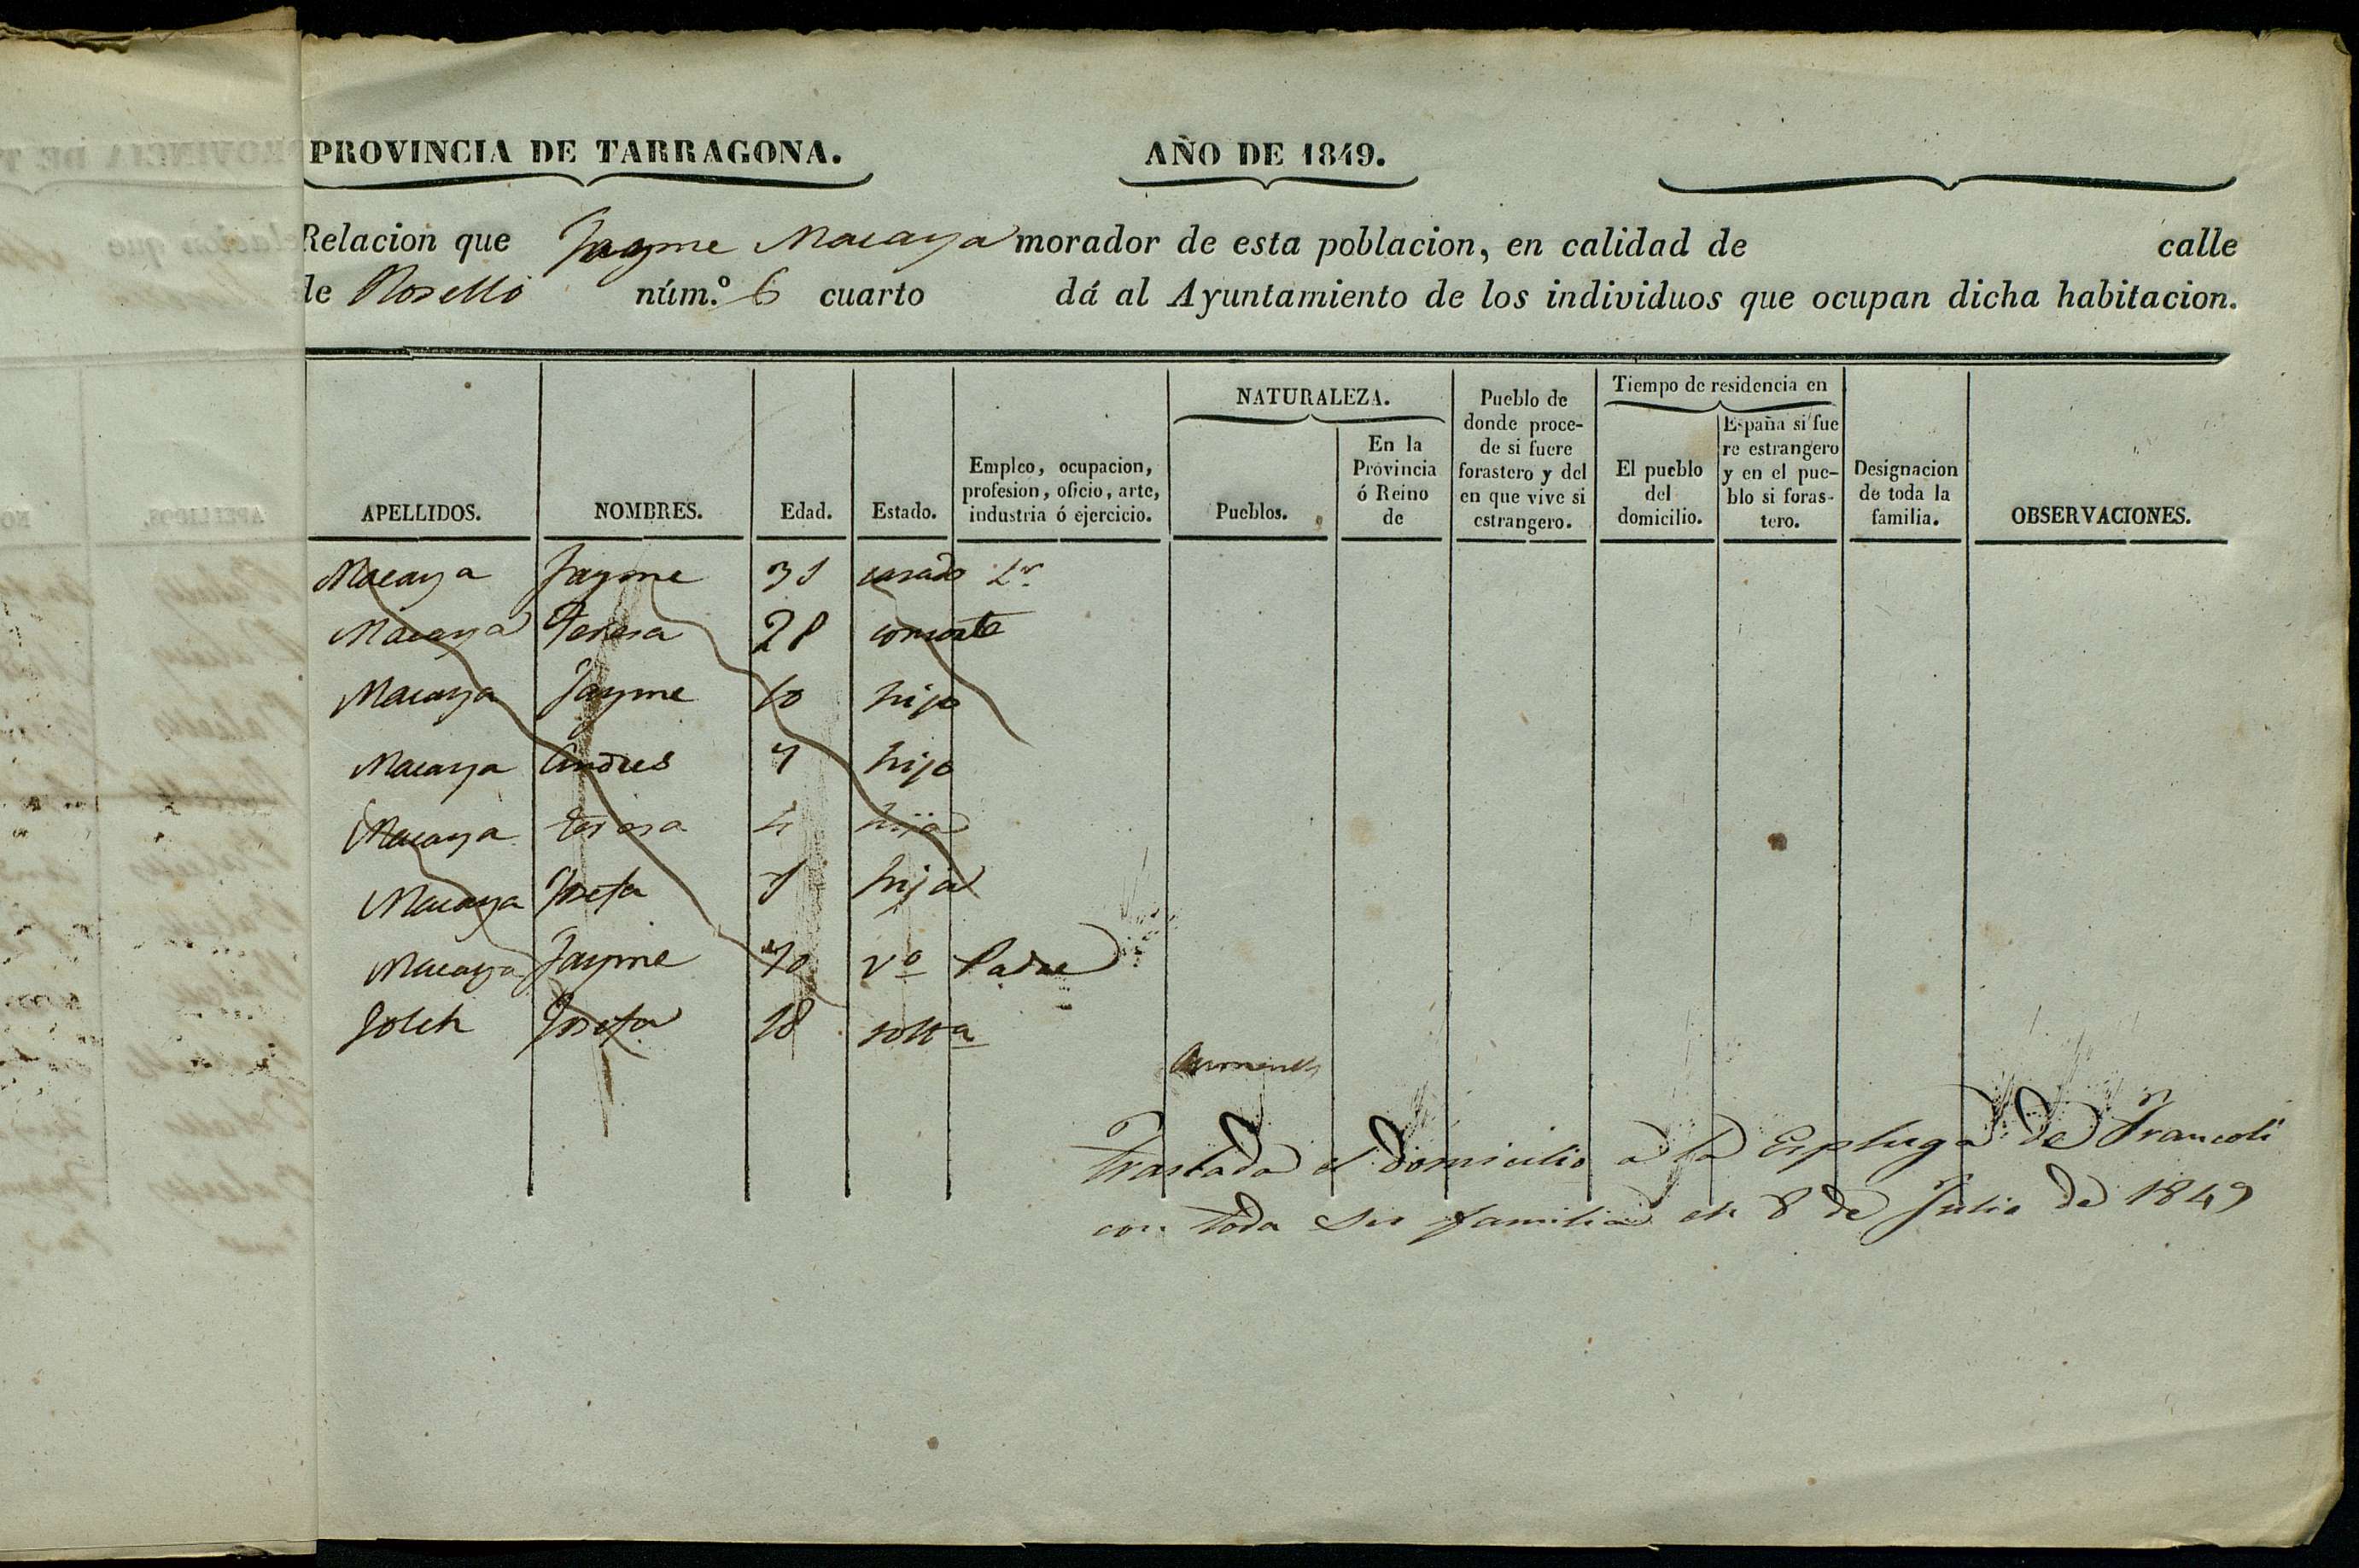 PROVINCIA DE TARRAGONA. AÑO DE 1849.
Relacion que Jayme Macaya morador de esta poblacion, en calidad de calle
de Roselló núm.º 6 cuarto dá al Ayuntamiento de los individuos que ocupan dicha habitacion.
APELLIDOS. NOMBRES. Edad. Estado. Empleo, ocupacion, profesion, oficio, arte, industria ó ejercicio. NATURALEZA. Pueblos. En la Provincia ó Reino de Pueblo de donde procede si fuere forastero y del en que vive si estrangero. Tiempo de residencia en El pueblo del domicilio. España si fuere estrangero y en el pueblo si forastero. Designacion de toda la familia. OBSERVACIONES.
Macaya Jayme 31 casado Lr
Macaya Teresa 28 consorte
Macaya Jayme 10 hijo
Macaya Andres 7 hijo
Macaya teresa 4 hija
Macaya Josefa 1 hija
Macaya Jayme 70 vº Padre
Folch Josefa 18 solta
Traslada el domicilio a la Espluga de Francoli
con toda su familia el 8 de Julio de 1849